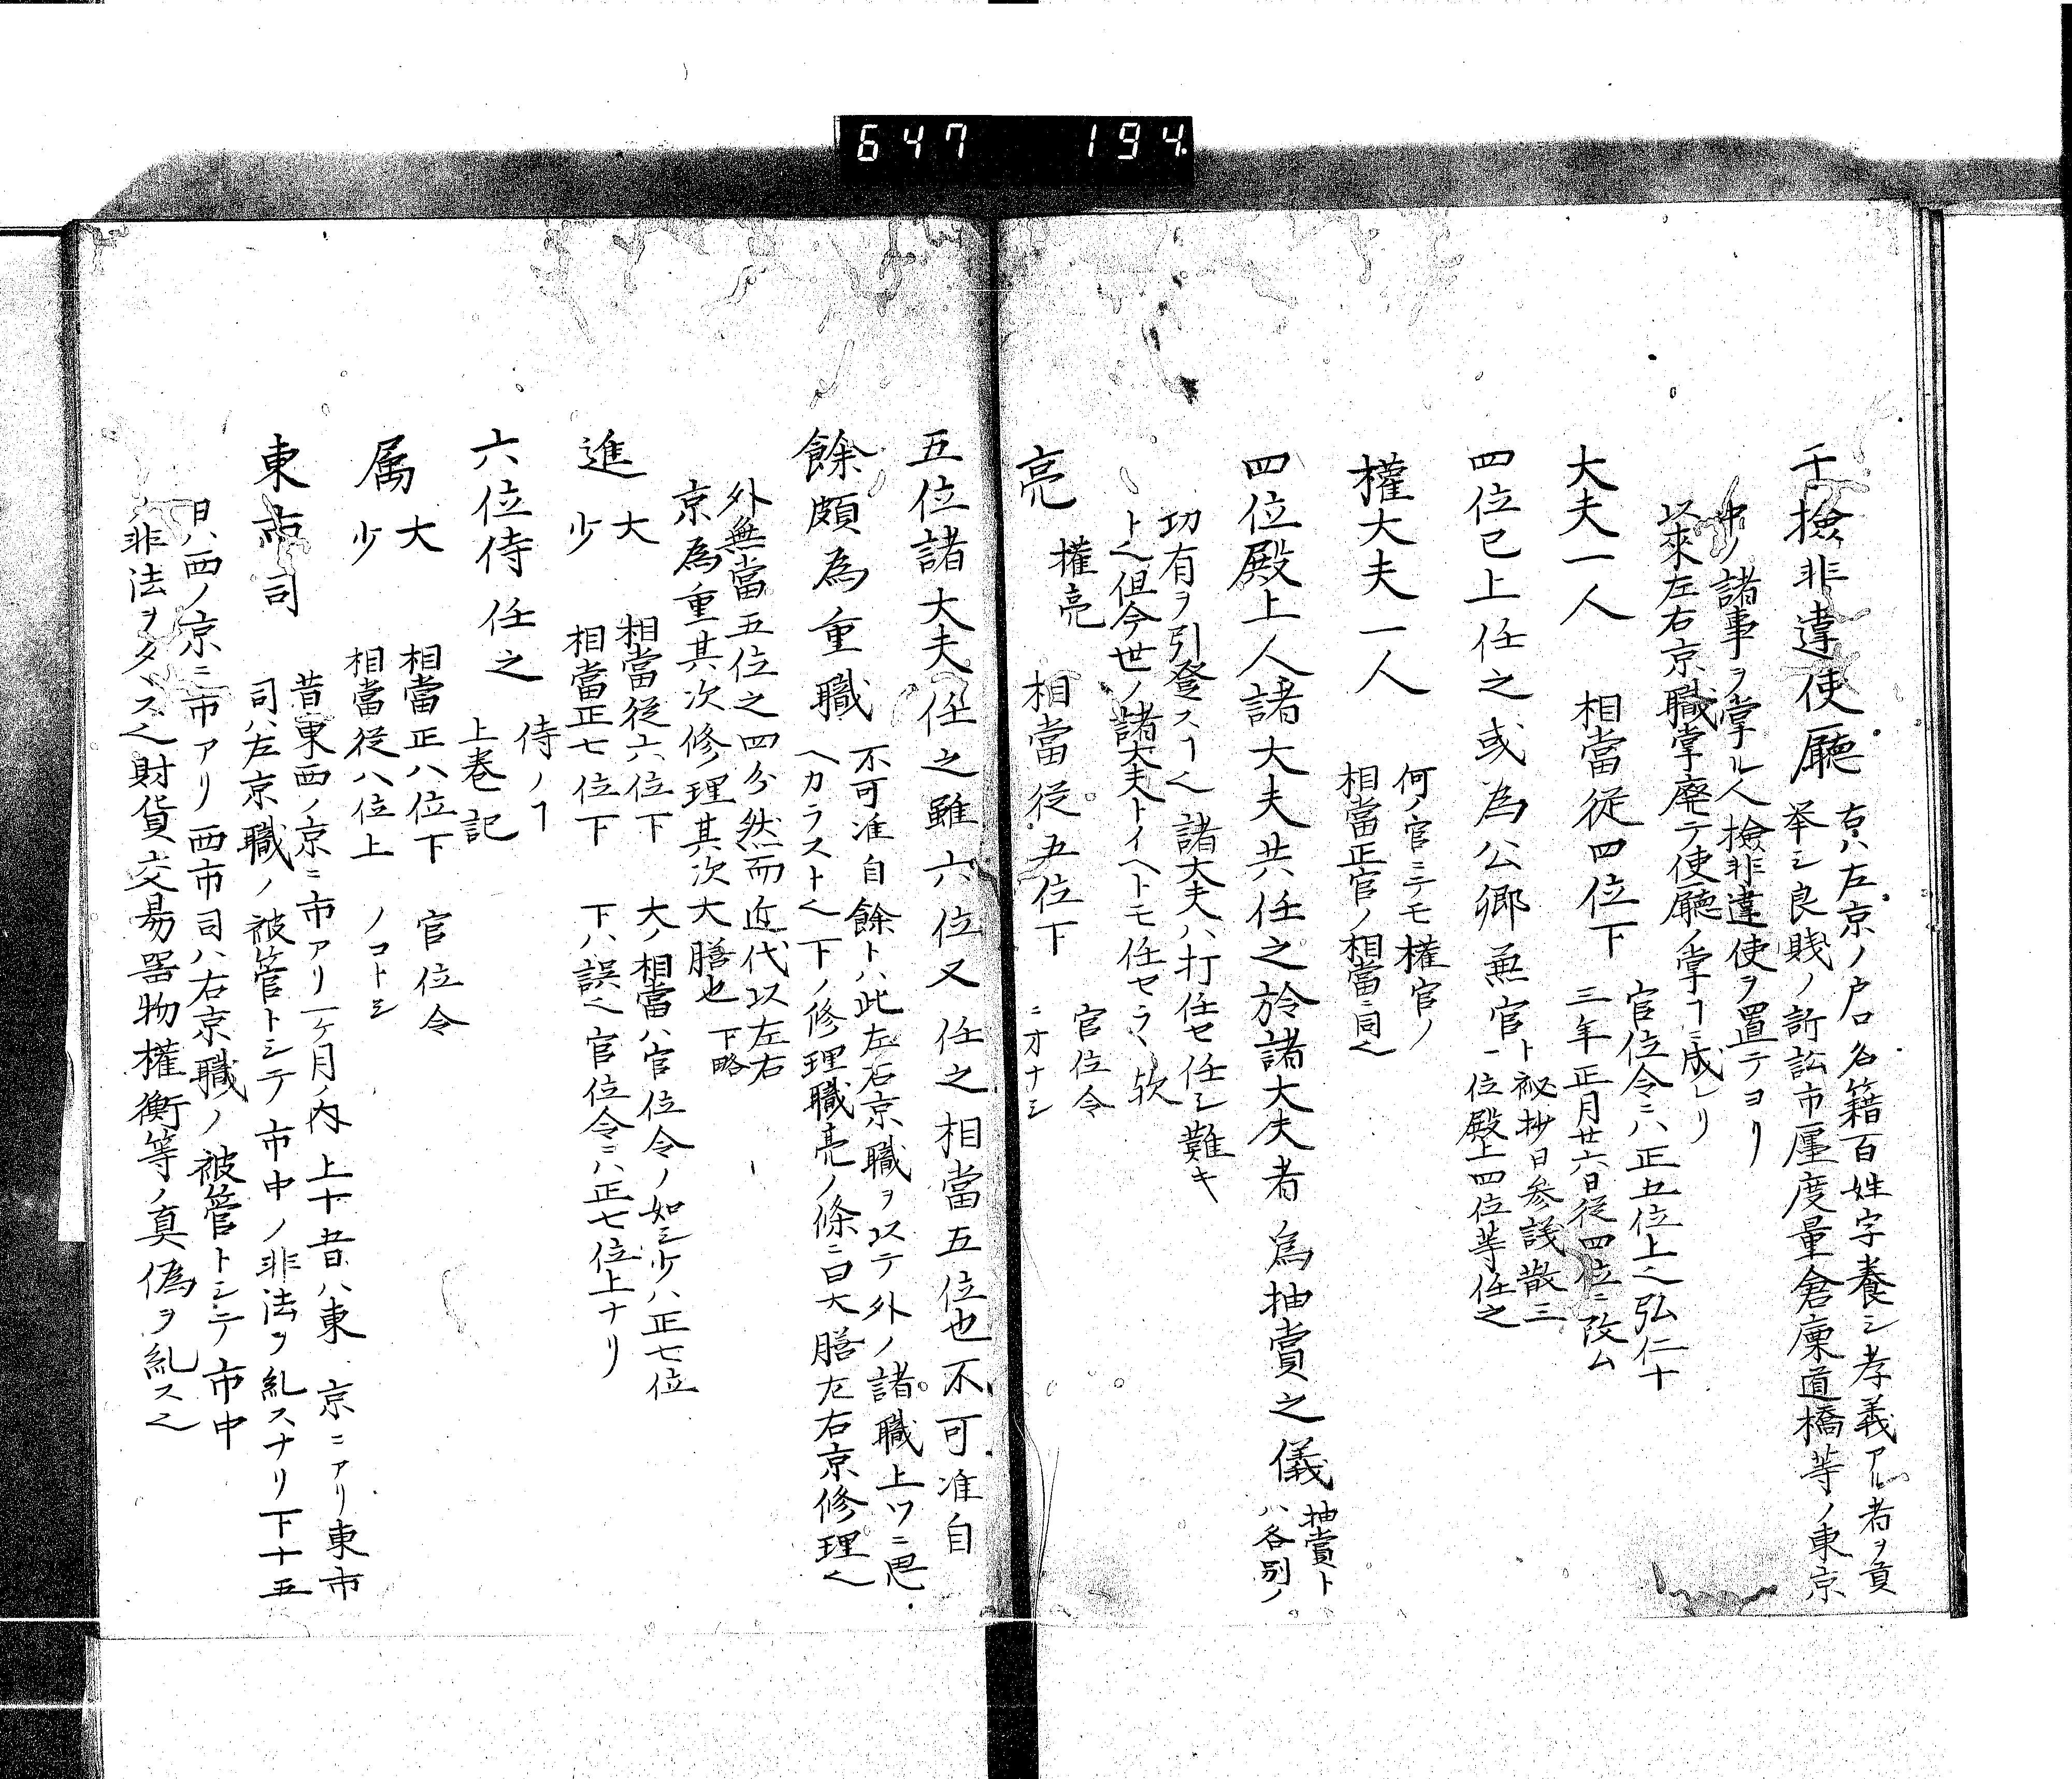 647 194.
于撿非違使廳
古ハ左京ノ戸口名籍百姓字養シ孝義アル者ヲ貢
挙シ良賤ノ訴訟市厘度量倉廩道橋等ノ東京
中ノ諸事ヲ掌ル人撿非違使ヲ置テヨリ
以來左右京職掌廃テ使廳ノ掌ヿニ成レリ
大夫一人 相當従四位下
官位令ニハ正五位上也弘仁十
三年正月廿六日従四位ニ改ム
四位已上任之或為公卿兼官
ト秘抄曰参議散三
一位殿上四位等任之
權大夫一人
何ノ官ニテモ權官ノ
相當正官ノ相當ニ同也
四位殿上人諸大夫共任之於諸大夫者為抽賞之儀
抽賞ト
ハ各別ノ
功有ヲ引登スヿ也諸大夫ハ打任セ任シ難キ
ト也但今世ノ諸大夫トイヘトモ任セラヽ欤
亮 權亮 相當従五位下
官位令
ニ才ナシ
五位諸大夫任之雖六位又任之相當五位也不可准自
餘頗為重職
不可准自餘トハ此左右京職ヲ以テ外ノ諸職上ツニ思
ヘカラスト也下ノ修理職亮ノ條ニ曰大膳左右京修理也
外無當五位之四分然而近代以左右
京為重其次修理其次大膳也 下略
進 大 相當従六位下
少 相當正七位下
大ノ相當ハ官位令ノ如シ少ハ正七位
下ハ誤也官位令ニハ正七位上ナリ
六位侍任之
侍ノヿ
上巻記
属 大 相當正八位下
少 相當従八位上
官位令
ノコトシ
東市司
昔東西ノ京ニ市アリ一ケ月ノ内上十五日ハ東京ニアリ東市
司ハ左京職ノ被管トシテ市中ノ非法ヲ糺スナリ下十五
日ハ西ノ京ニ市アリ西市司ハ右京職ノ被管トシテ市中
ノ非法ヲタヽス也財貨交易器物權衡等ノ真偽ヲ糺ス也